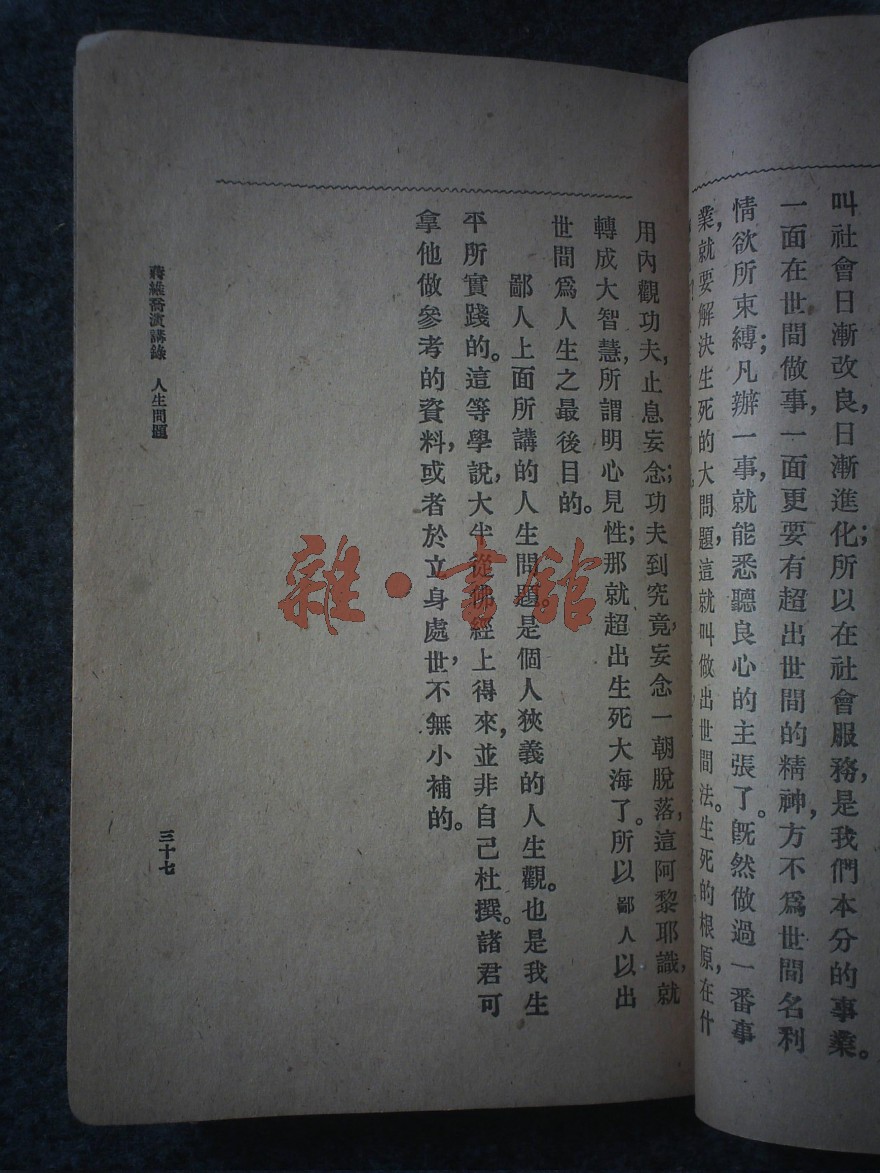 叫社會日漸改良，日漸進化；所以在社會服務，是我們本分的事業。
一面在世間做事，一面更要有超出世間的精神，方不爲世間名利
情欲所束縛；凡辦一事，就能悉聽良心的主張了。旣然做過一番事
業，就要解決生死的大問題，這就叫做出世間法。生死的根原，在什
用內觀功夫，止息妄念；功夫到究竟，妄念一朝脫落，這阿黎耶識，就
轉成大智慧，所謂明心見性；那就超出生死大海了。所以鄙人以出
世間爲人生之最後目的。
鄙人上面所講的人生問題。是個人狹義的人生觀。也是我生
平所實踐的。這等學說，大半從佛經上得來，並非自己杜撰。諸君可
拿他做參考的資料，或者於立身處世，不無小補的。
蔣維喬演講錄 人生問題
三十七
雜·書館